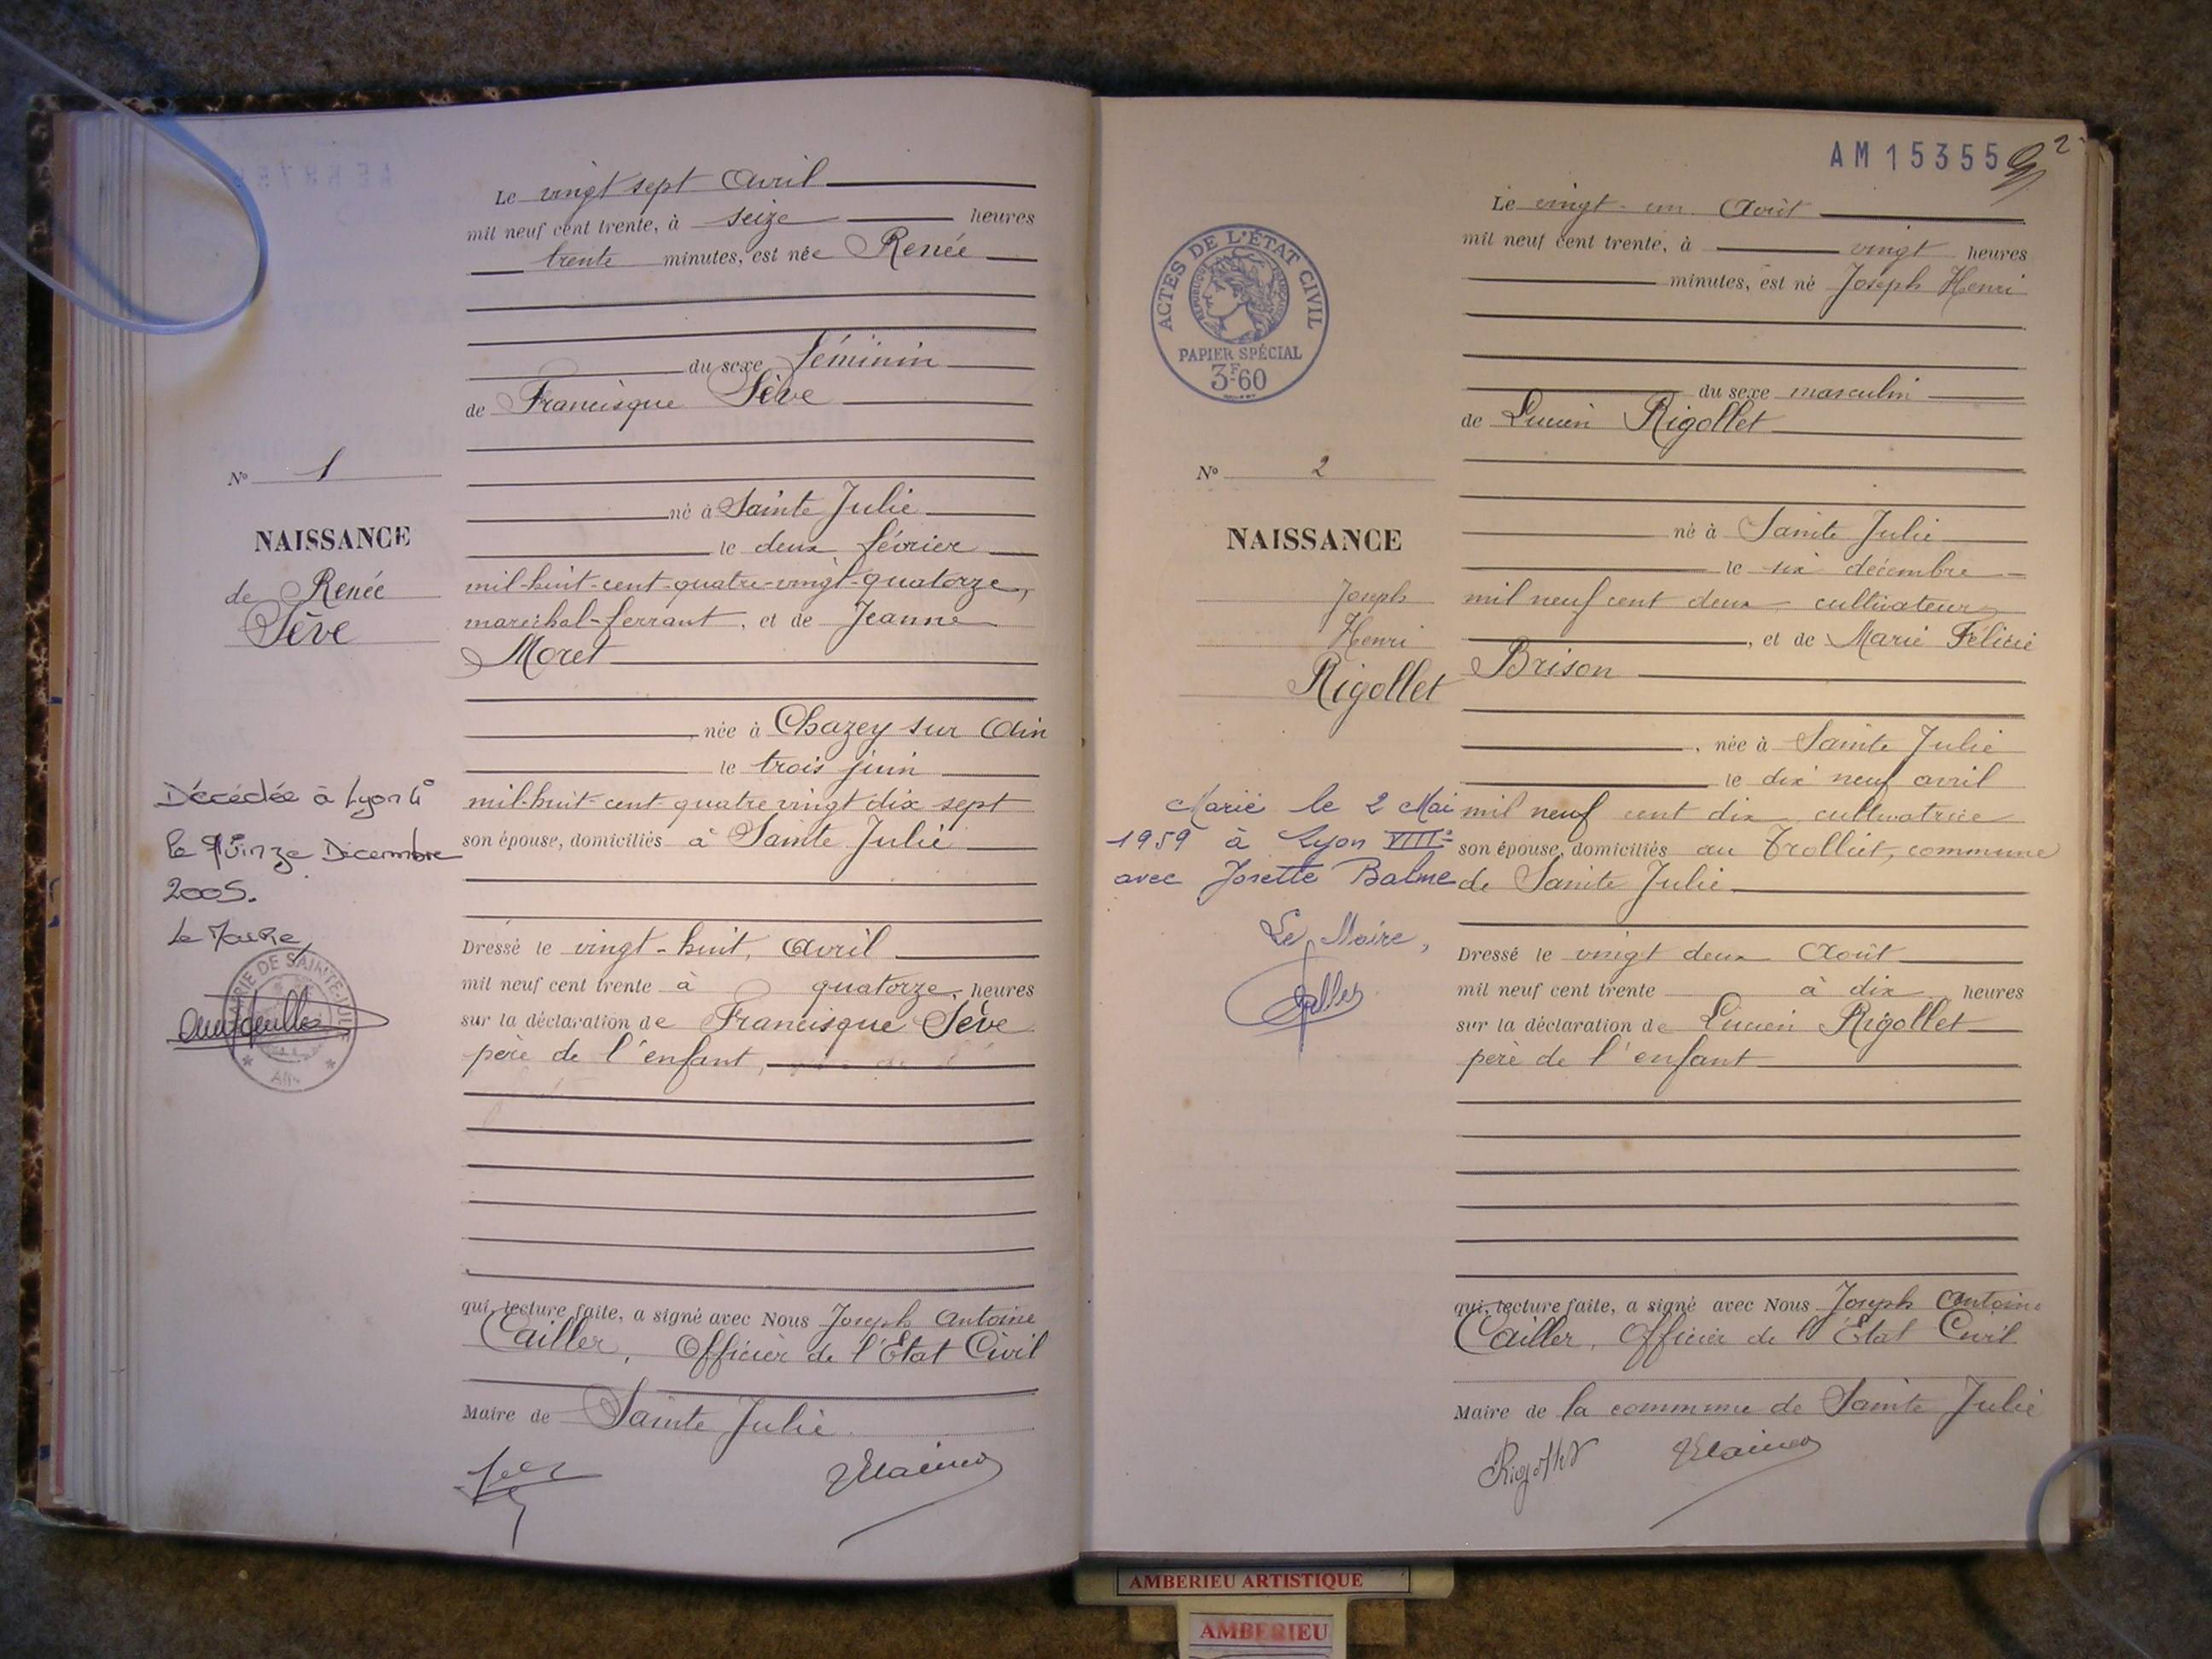 Le vingt sept Avril
mil neuf cent trente, à seize heures
trente minutes, est née Renée
du sexe féminin
de Francisque Sève
né à Sainte Julie
le deux février
mil-huit-cent-quatre-vingt-quatorze,
maréchal-ferrant, et de Jeanne
Moret
née à Chazey sur Ain
le trois juin
mil-huit-cent quatre vingt dix sept
son épouse, domiciliés à Sainte Julie
Dressé le vingt-huit, Avril
mil neuf cent trente à quatorze, heures
sur la déclaration de Francisque Sève
père de l'enfant,
qui, lecture faite, a signé avec Nous Joseph Antoine
Cailler, Officier de l'Etat Civil
Maire de Sainte Julie
N° 1
NAISSANCE
de Renée
Sève
Décédée à Lyon 4°
le Quinze Décembre
2005.
Le Maire
MAIRIE DE SAINTE-JULIE
AIN
AM 15355
2
ACTES DE L'ÉTAT CIVIL
RÉPUBLIQUE FRANÇAISE
PAPIER SPÉCIAL
3F60
Le vingt-un Août
mil neuf cent trente, à vingt heures
minutes, est né Joseph Henri
du sexe masculin
de Lucien Rigollet
né à Sainte Julie
le six décembre
mil neuf cent deux cultivateur
, et de Marie Félicie
Brison
, née à Sainte Julie
le dix neuf avril
mil neuf cent dix cultivatrice
son épouse, domiciliés au Trolliet, commune
de Sainte Julie
Dressé le vingt deux Août
mil neuf cent trente à dix heures
sur la déclaration de Lucien Rigollet
père de l'enfant
qui, lecture faite, a signé avec Nous Joseph Antoine
Cailler, Officier de l'Etat Civil
Maire de la commune de Sainte Julie
Rigollet
N° 2
NAISSANCE
Joseph
Henri
Rigollet
Marié le 2 Mai
1959 à Lyon VIII°
avec Josette Balme
Le Maire,
AMBERIEU ARTISTIQUE
AMBERIEU